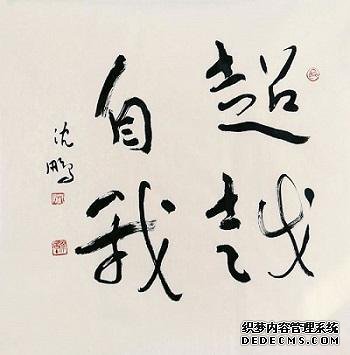 超越
自我
沈鹏
织梦内容管理系统
DEDECMS.COM